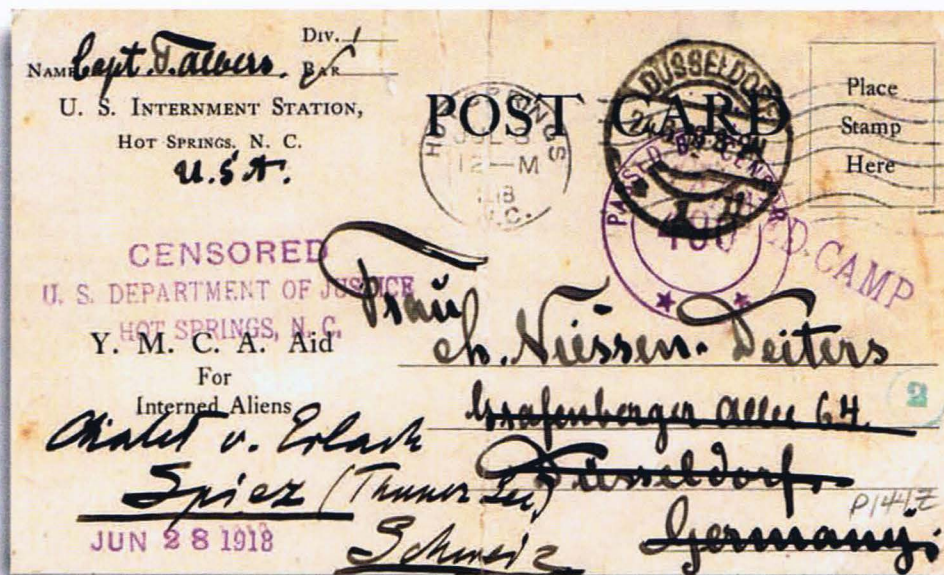 Div. 1
NAME Capt. T. Bar.
U. S. INTERNMENT STATION,
HOT SPRINGS, N. C.
U.S.A.
POST CARD
HOT SPRINGS
JUL 3
12—M
1918
N.C.
DÜSSELDORF
Place
Stamp
Here
PASSED BY CENSOR
400
CAMP
CENSORED
U. S. DEPARTMENT OF JUSTICE
HOT SPRINGS, N. C.
Y. M. C. A. Aid
For
Interned Aliens
Frau
Ch. Niessen-Deiters
Grafenberger Allee 64.
Düsseldorf.
Germany.
2
Chalet v. Erlach
Spiez (Thuner See)
Schweiz
JUN 28 1918